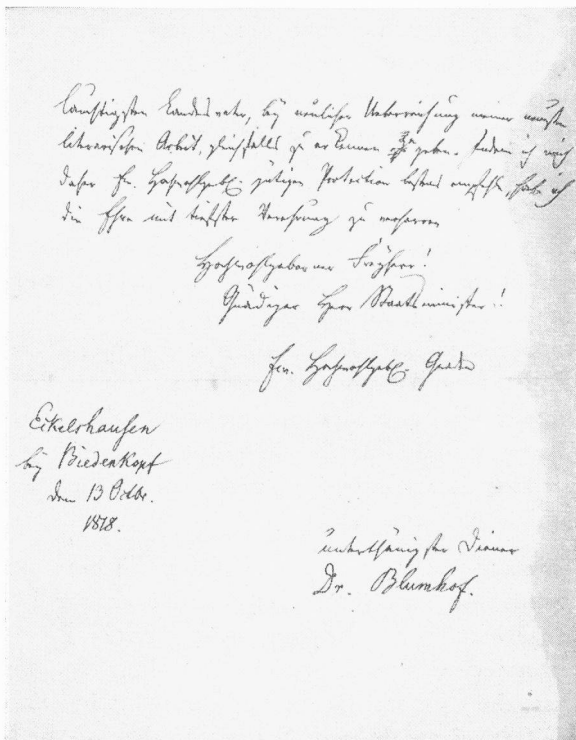 lauchtigsten Landesvater, bey neulicher Ueberreichung meiner neusten
literarischen Arbeit, gleichfalls zu erkennen zu geben. Indem ich mich
daher Ew. Hochwohlgebl. gütigen Protection bestens empfehle, habe ich
die Ehre mit tiefster Verehrung zu verharren
Hochwohlgeborner Freyherr!
Gnädiger Herr Staatsminister!
Ew. Hochwohlgebl. Gnaden
Eckelshausen
bey Biedenkopf
den 13 Octbr.
1818.
unterthänigster Diener
Dr. Blumhof.